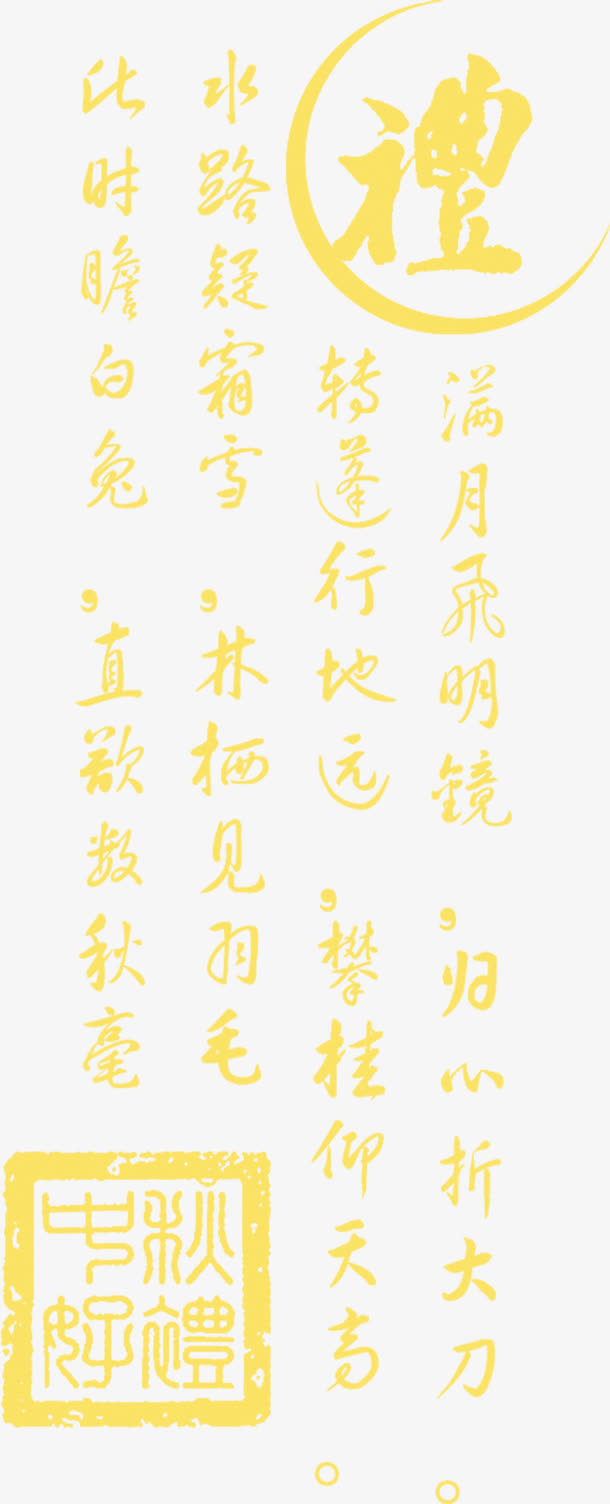 禮
满月飛明鏡,归心折大刀。
转蓬行地远,攀桂仰天高。
水路疑霜雪,林栖见羽毛
此时瞻白兔,直欲数秋毫
中秋好禮